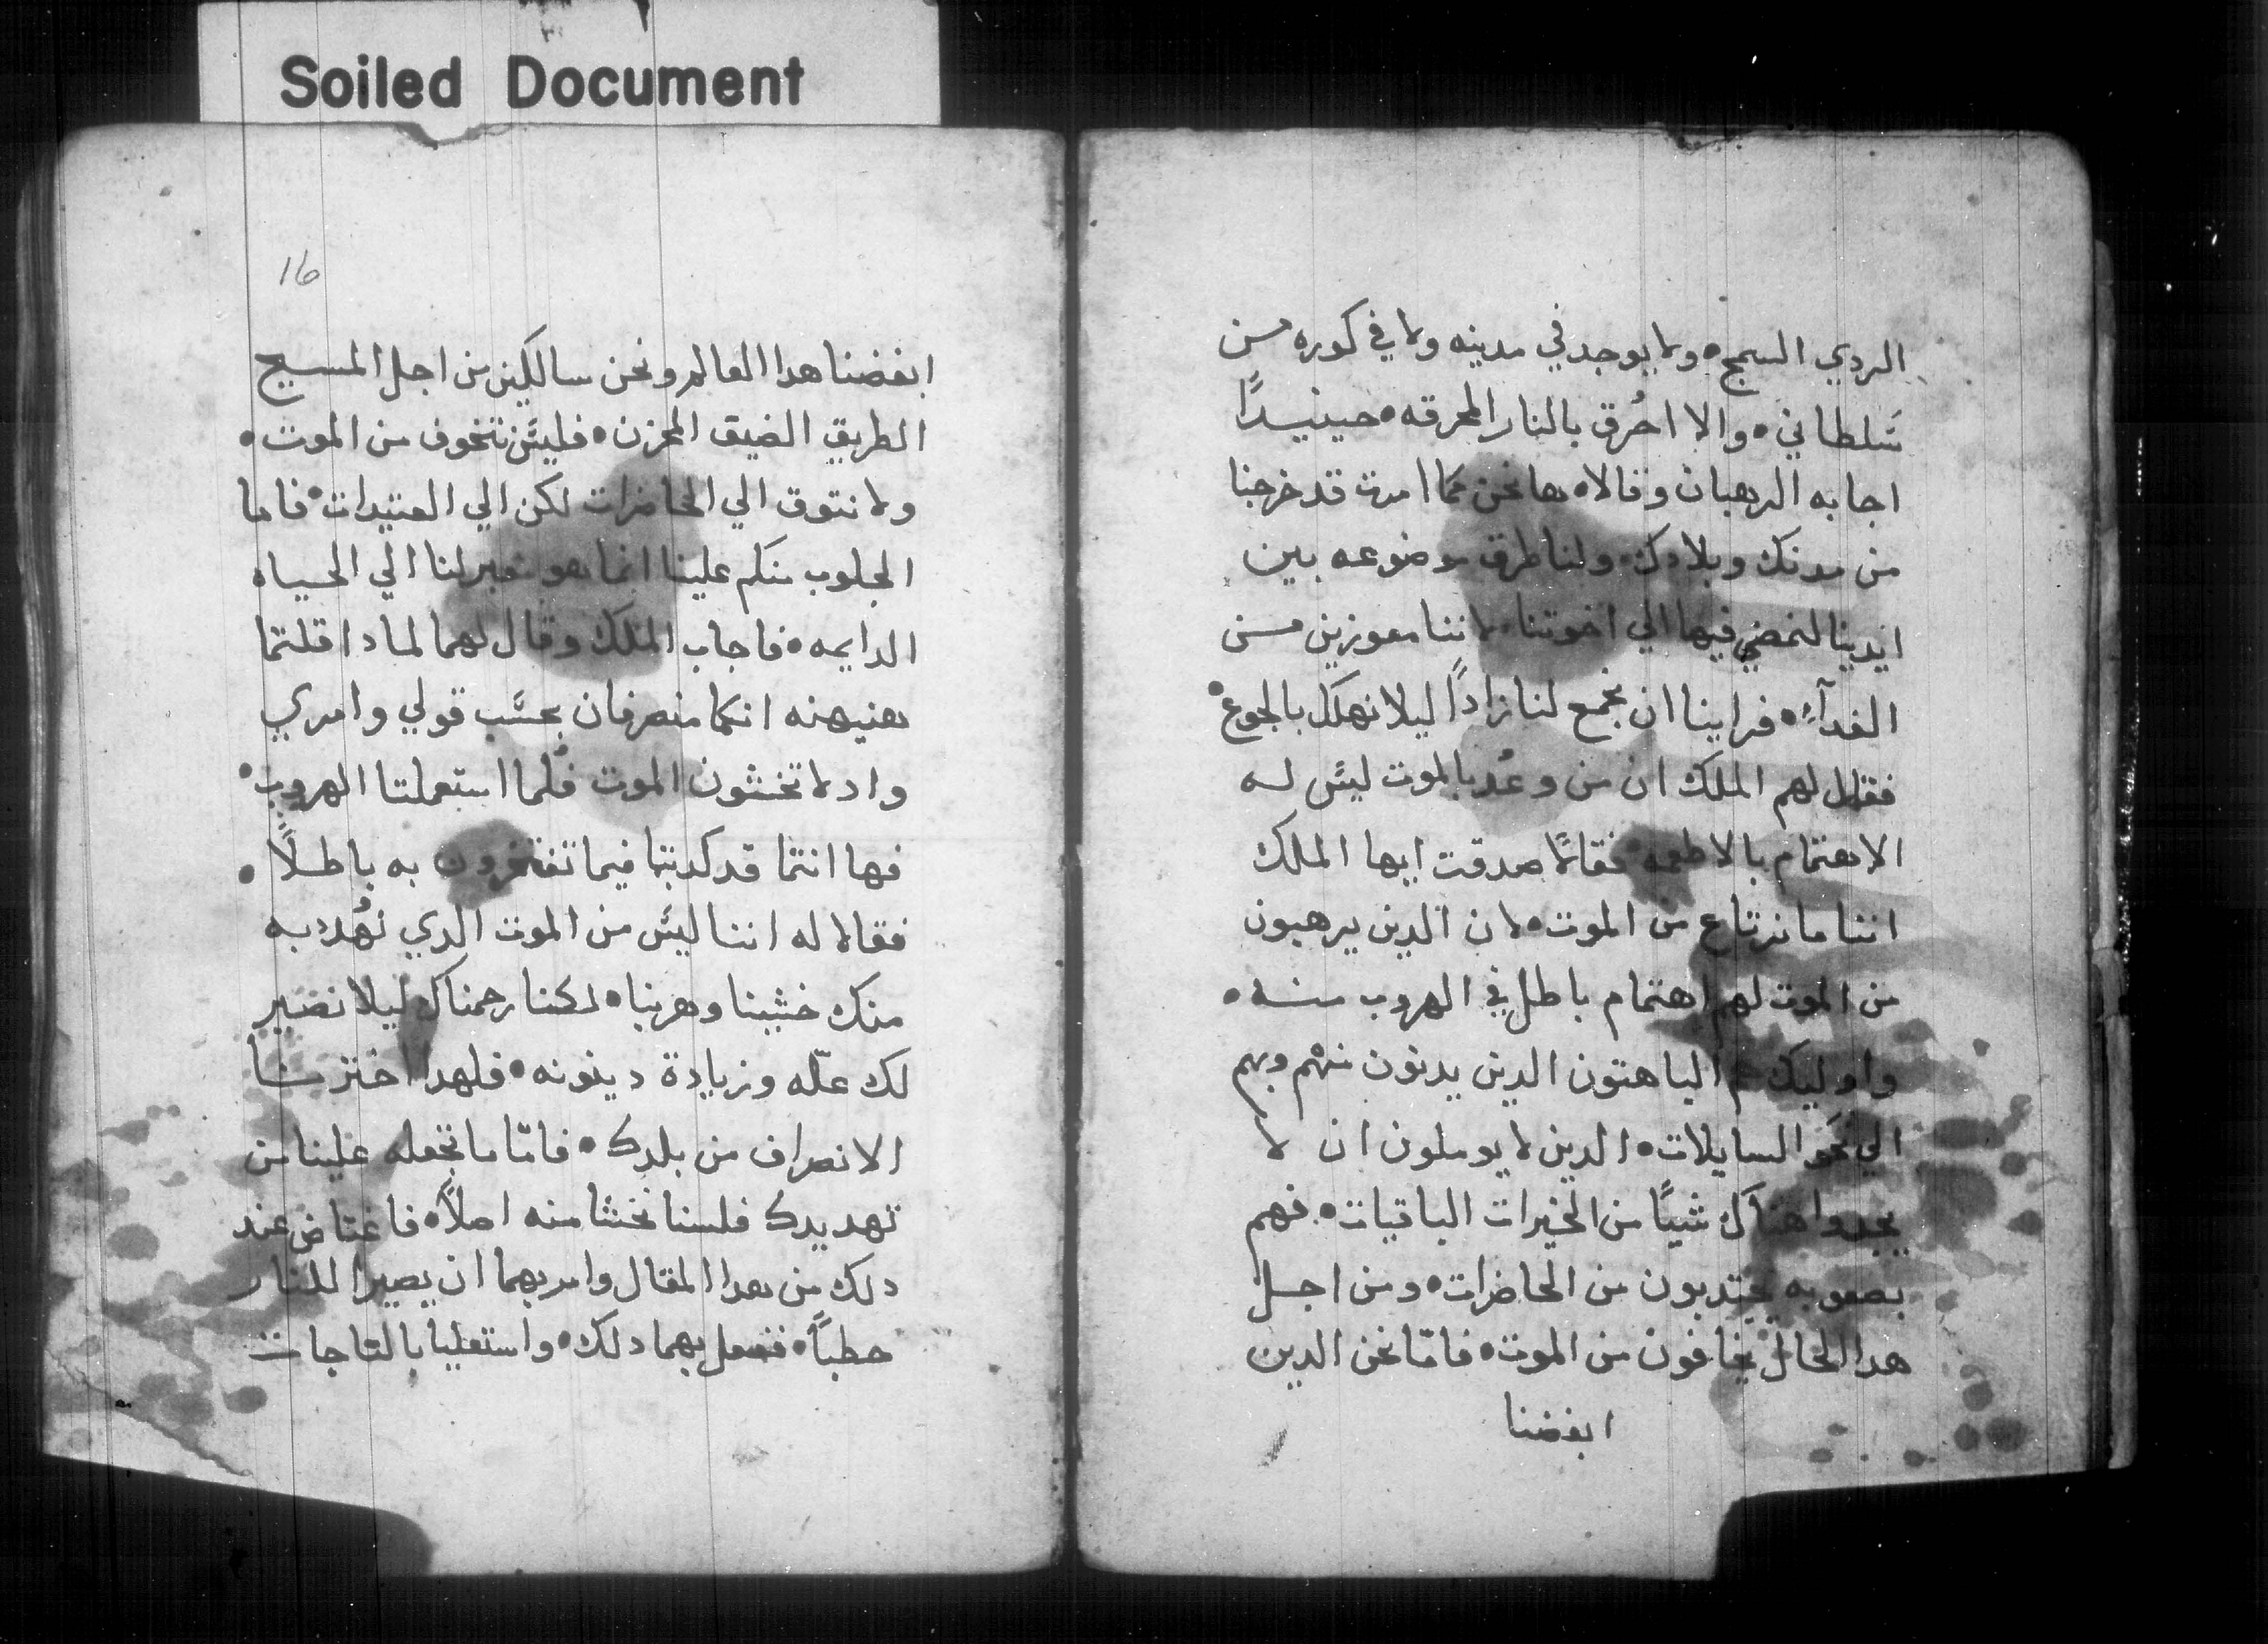 Soiled Document
الردي السمج• ولا يوجد في مدينه ولا في كوره من
سَلطاني• والا احُرق بالنار المحرقه• حينيدًا
اجابه الرهبان وقالا• ها نحن كما امرت قد خرجنا
من مدنك وبلادك• ولنا طرق موضوعه بين
ايدينا لنمضي فيها الي اخوتنا• لاننا معوزين من
الغدآء• فراينا ان نجمع لنا زادًا ليلا نهلك بالجوع•
فقال لهم الملك ان من وعُد بالموت ليسَ له
الاهتمام بالاطعمه• فقالا صدقت ايها الملك
اننا ما نرتاع من الموت• لان الدين يرهبون
من الموت لهم اهتمام باطل في الهروب منه•
واوليك هم الباهتون الدين يدنون منهم وبهم
الي نحو السايلات• الدين لا يوملون ان لا
يجدوا هناك شييًا من الخيرات الباقيات• فهم
بصعوبه يجتدبون من الحاضرات• ومن اجل
هدا الحال يخافون من الموت• فامّا نحن الدين
ابغضنا
16
ابغضنا هدا العالم ونحن سالكين من اجل المسيح
الطريق الضيق المحزن• فليسَ نتخوف من الموت•
ولا نتوق الي الحاضرات لكن الي العتيدات• فاما
المجلوب منكم علينا انما هو معبر لنا الي الحياه
الدايمه• فاجاب الملك وقال لهما لمادا قلتما
هنيهنه انكما منصرفان بحسَب قولي وامري
واد لا تخشون الموت فلما استعملتا الهروب•
فها انتما قد كدبتما فيما تفتخرون به باطلًا•
فقالا له اننا ليسَ من الموت الدي تهُدد به
منك خشينا وهربنا• لكننا رحمناك ليلا نصير
لك علّه وزيادة دينونه• فلهدا اخترنا
الانصراف من بلدك• فامّا ما تجعله علينا من
تهديدك فلسنا نخشا منه اصلًا• فاغتاض عند
دلك من هدا المقال وامر بهما ان يصيرا للنار
حطبًا• ففعل بهما دلك• واستعليا بالتاجات